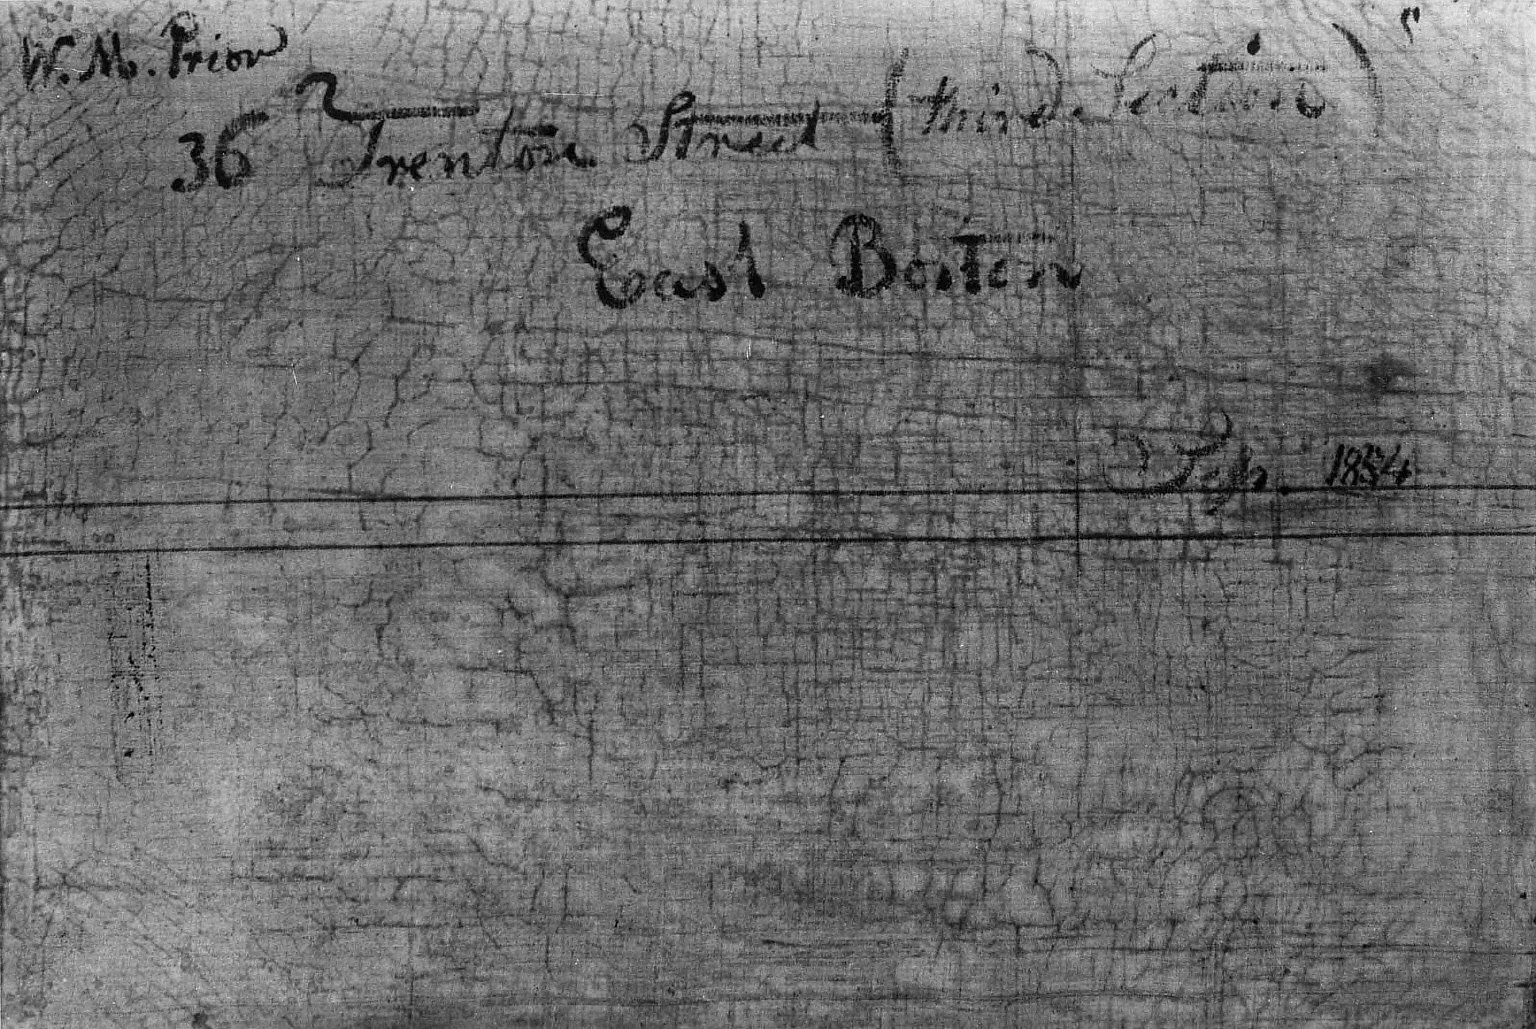 W. M. Prior
36 Trenton Street (third Section)
East Boston
Sep. 1854